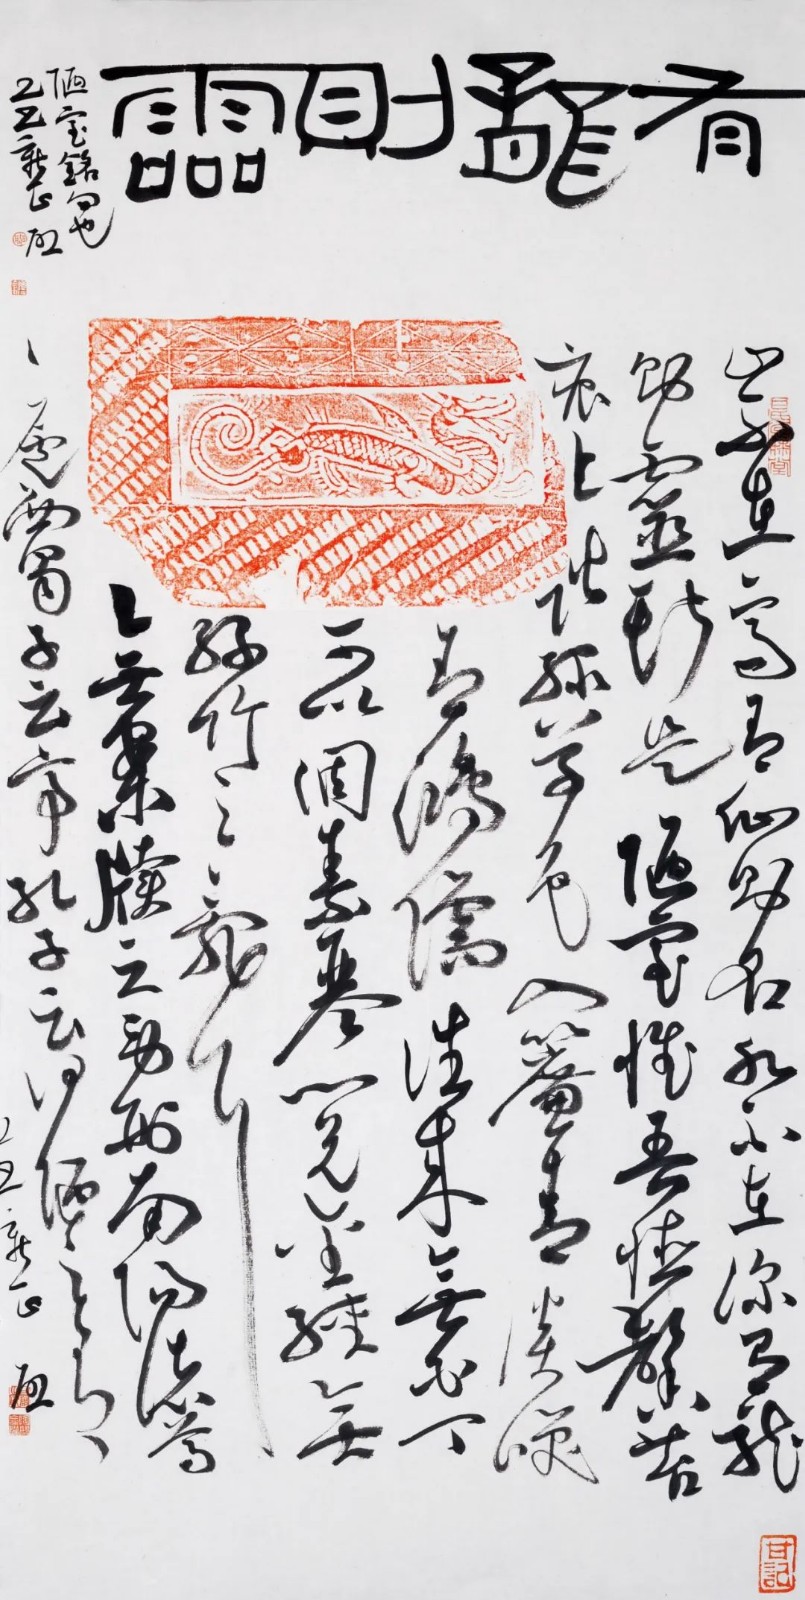 有龍則靈
陋室銘句也
山不在高有仙則名水不在深有龍
則靈斯是陋室惟吾德馨苔
痕上階綠草色入簾青談笑
有鴻儒往來無白丁
可以調素琴閱金經無
絲竹之亂耳
無案牘之勞形南陽諸葛
廬西蜀子云亭孔子云何陋之有